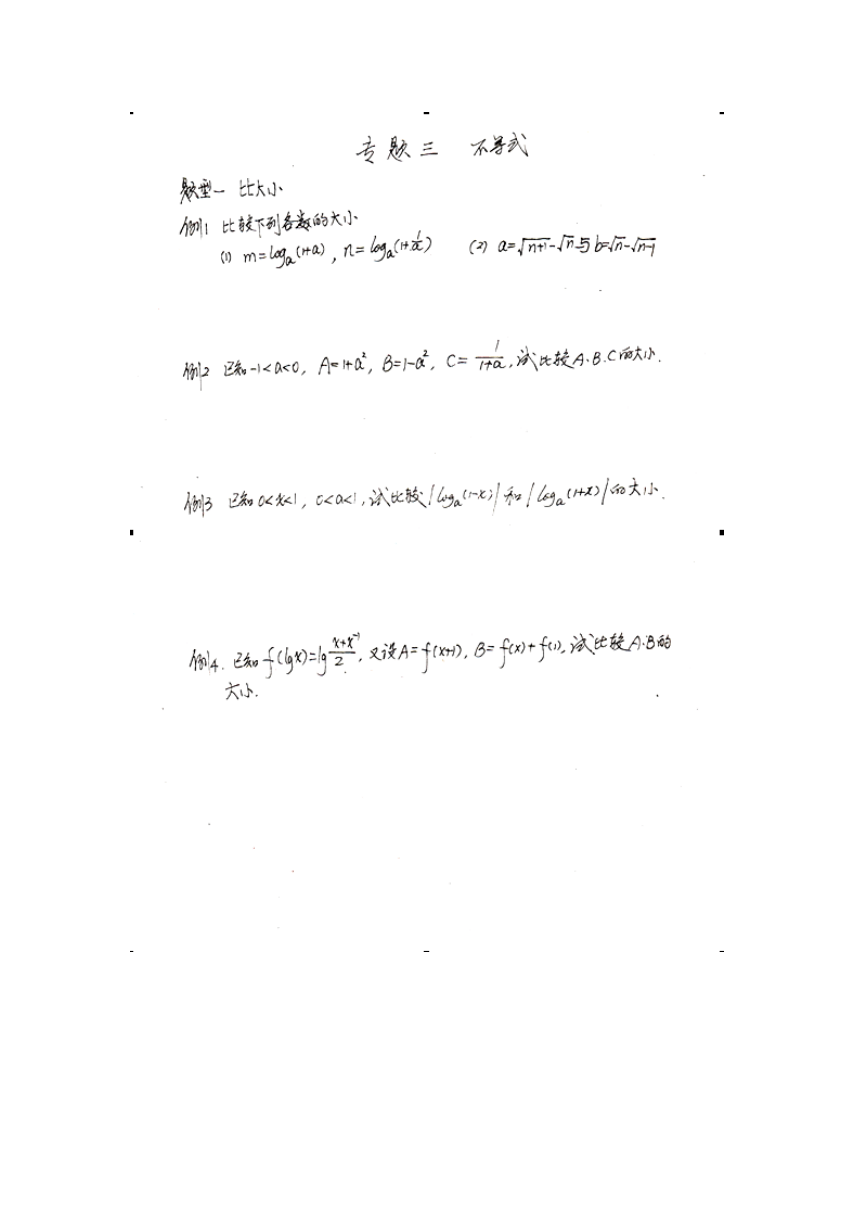 专题三 不等式
题型一 比大小
例1 比较下列各数的大小
(1) m=logₐ(1+a), n=logₐ(1+1/a) (2) a=√(n+1)-√n与b=√n-√(n-1)
例2 已知-1<a<0, A=1+a², B=1-a², C=1/(1+a), 试比较A.B.C的大小.
例3 已知0<x<1, 0<a<1, 试比较|logₐ(1-x)|和|logₐ(1+x)|的大小.
例4. 已知f(lgx)=lg (x+x⁻¹)/2, 又设A=f(x+1), B=f(x)+f(1), 试比较A.B的
大小.